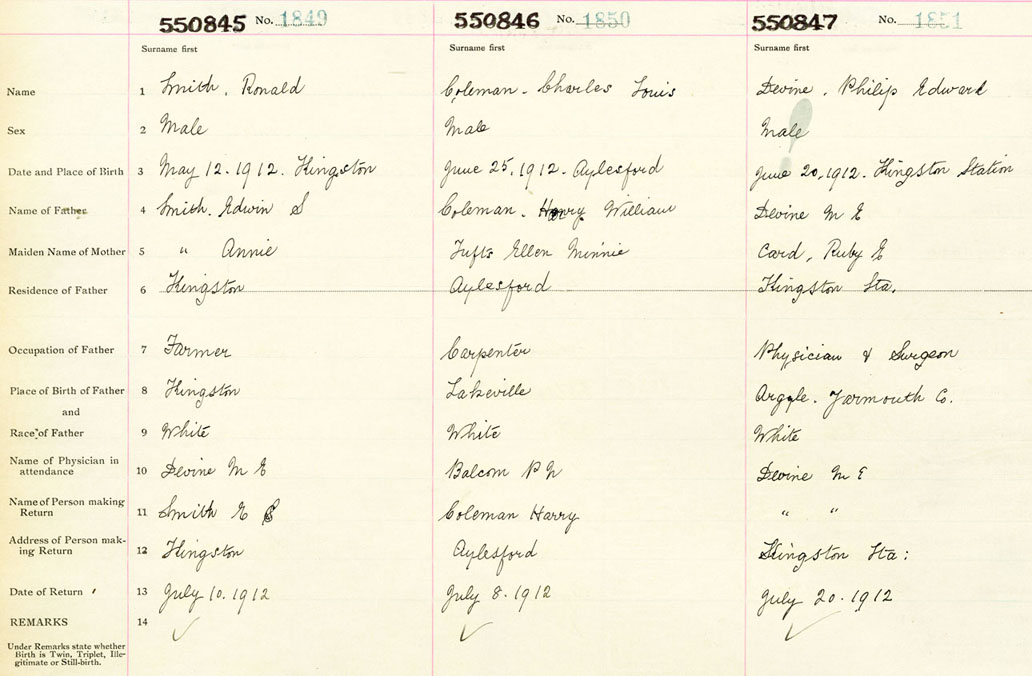 550845 No. 1849 550846 No. 1850 550847 No. 1851
Surname first Surname first Surname first
Name 1 Smith, Ronald Coleman - Charles Louis Devine, Philip Edward
Sex 2 Male Male Male
Date and Place of Birth 3 May 12. 1912. Kingston June 25, 1912. Aylesford June 20, 1912. Kingston Station
Name of Father 4 Smith, Edwin S Coleman. Harry William Devine M E
Maiden Name of Mother 5 " Annie Tufts Ellen Minnie Card, Ruby E
Residence of Father 6 Kingston Aylesford Kingston Sta.
Occupation of Father 7 Farmer Carpenter Physician & Surgeon
Place of Birth of Father 8 Kingston Lakeville Argyle. Yarmouth Co.
and
Race of Father 9 White White White
Name of Physician in
attendance 10 Devine M E Balcom P N Devine M E
Name of Person making
Return 11 Smith E S Coleman Harry " "
Address of Person mak-
ing Return 12 Kingston Aylesford Kingston Sta:
Date of Return 13 July 10. 1912 July 8. 1912 July 20. 1912
REMARKS 14
Under Remarks state whether
Birth is Twin, Triplet, Ille-
gitimate or Still-birth.